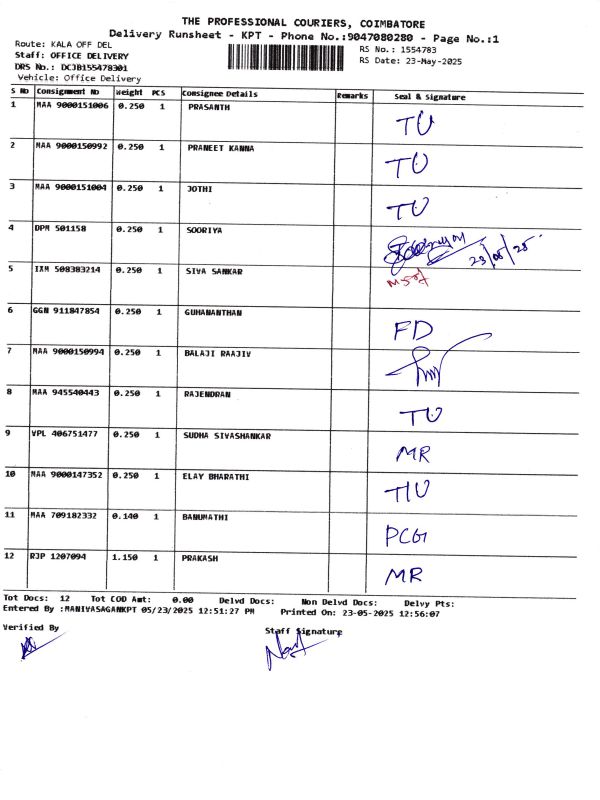 THE PROFESSIONAL COURIERS, COIMBATORE
Delivery Runsheet - KPT - Phone No.:9047080280 - Page No.:1
Route: KALA OFF DEL
RS No.: 1554783
Staff: OFFICE DELIVERY
RS Date: 23-May-2025
DRS No.: DCJB155478301
Vehicle: Office Delivery
S No Consignment No Weight PCS Consignee Details Remarks Seal & Signature
1 MAA 9000151006 0.250 1 PRASANTH TU
2 MAA 9000150992 0.250 1 PRANEET KANNA TU
3 MAA 9000151004 0.250 1 JOTHI TU
4 DPM 501158 0.250 1 SOORIYA 23/05/25
5 IXM 508383214 0.250 1 SIVA SANKAR
6 GGN 911847854 0.250 1 GUHANANTHAN FD
7 MAA 9000150994 0.250 1 BALAJI RAAJIV
8 MAA 945540443 0.250 1 RAJENDRAN TU
9 VPL 406751477 0.250 1 SUDHA SIVASHANKAR MR
10 MAA 9000147352 0.250 1 ELAY BHARATHI TU
11 MAA 709182332 0.140 1 BANUMATHI PCG
12 RJP 1207094 1.150 1 PRAKASH MR
Tot Docs: 12 Tot COD Amt: 0.00 Delvd Docs: Non Delvd Docs: Delvy Pts:
Entered By :MANIVASAGANKPT 05/23/2025 12:51:27 PM Printed On: 23-05-2025 12:56:07
Verified By
Staff Signature